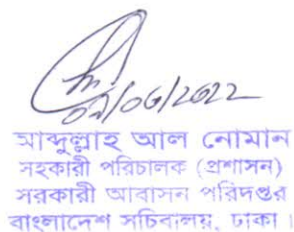 ০৭/০৬/২০২২
আব্দুল্লাহ আল নোমান
সহকারী পরিচালক (প্রশাসন)
সরকারী আবাসন পরিদপ্তর
বাংলাদেশ সচিবালয়, ঢাকা।